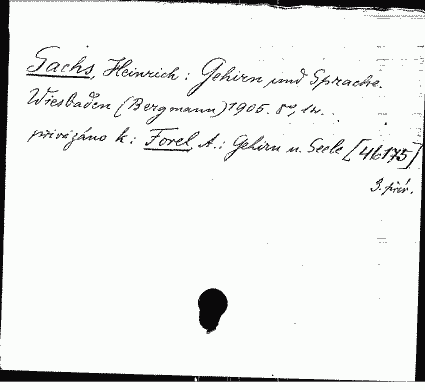 Sachs, Heinrich: Gehirn und Sprache.
Wiesbaden (Bergmann) 1905. 8°, 1v.
přivázáno k: Forel, A.: Gehirn u. Seele [46175]
3. přív.